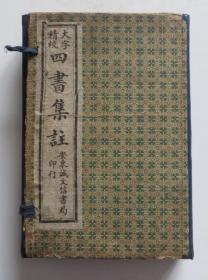 大字
精校
四書集註
安東誠文信書局
印行